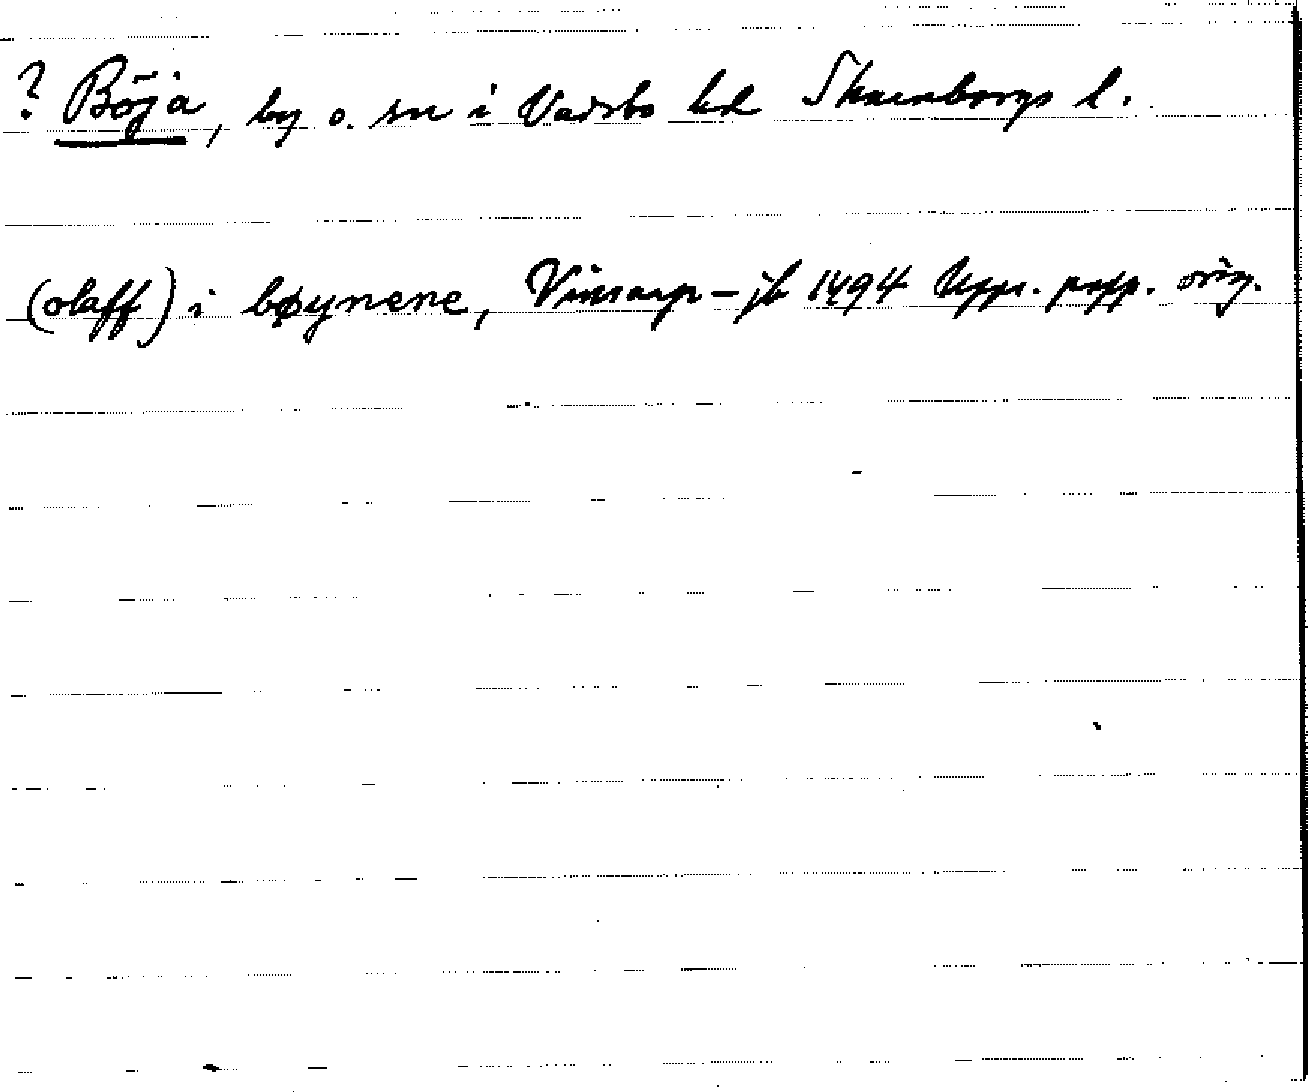 ? Böja, by o. sn i Vadsbo hd Skaraborgs l.
(olaff) i bøynene, Vinsarp-jb 1494 Upps. papp. orig.